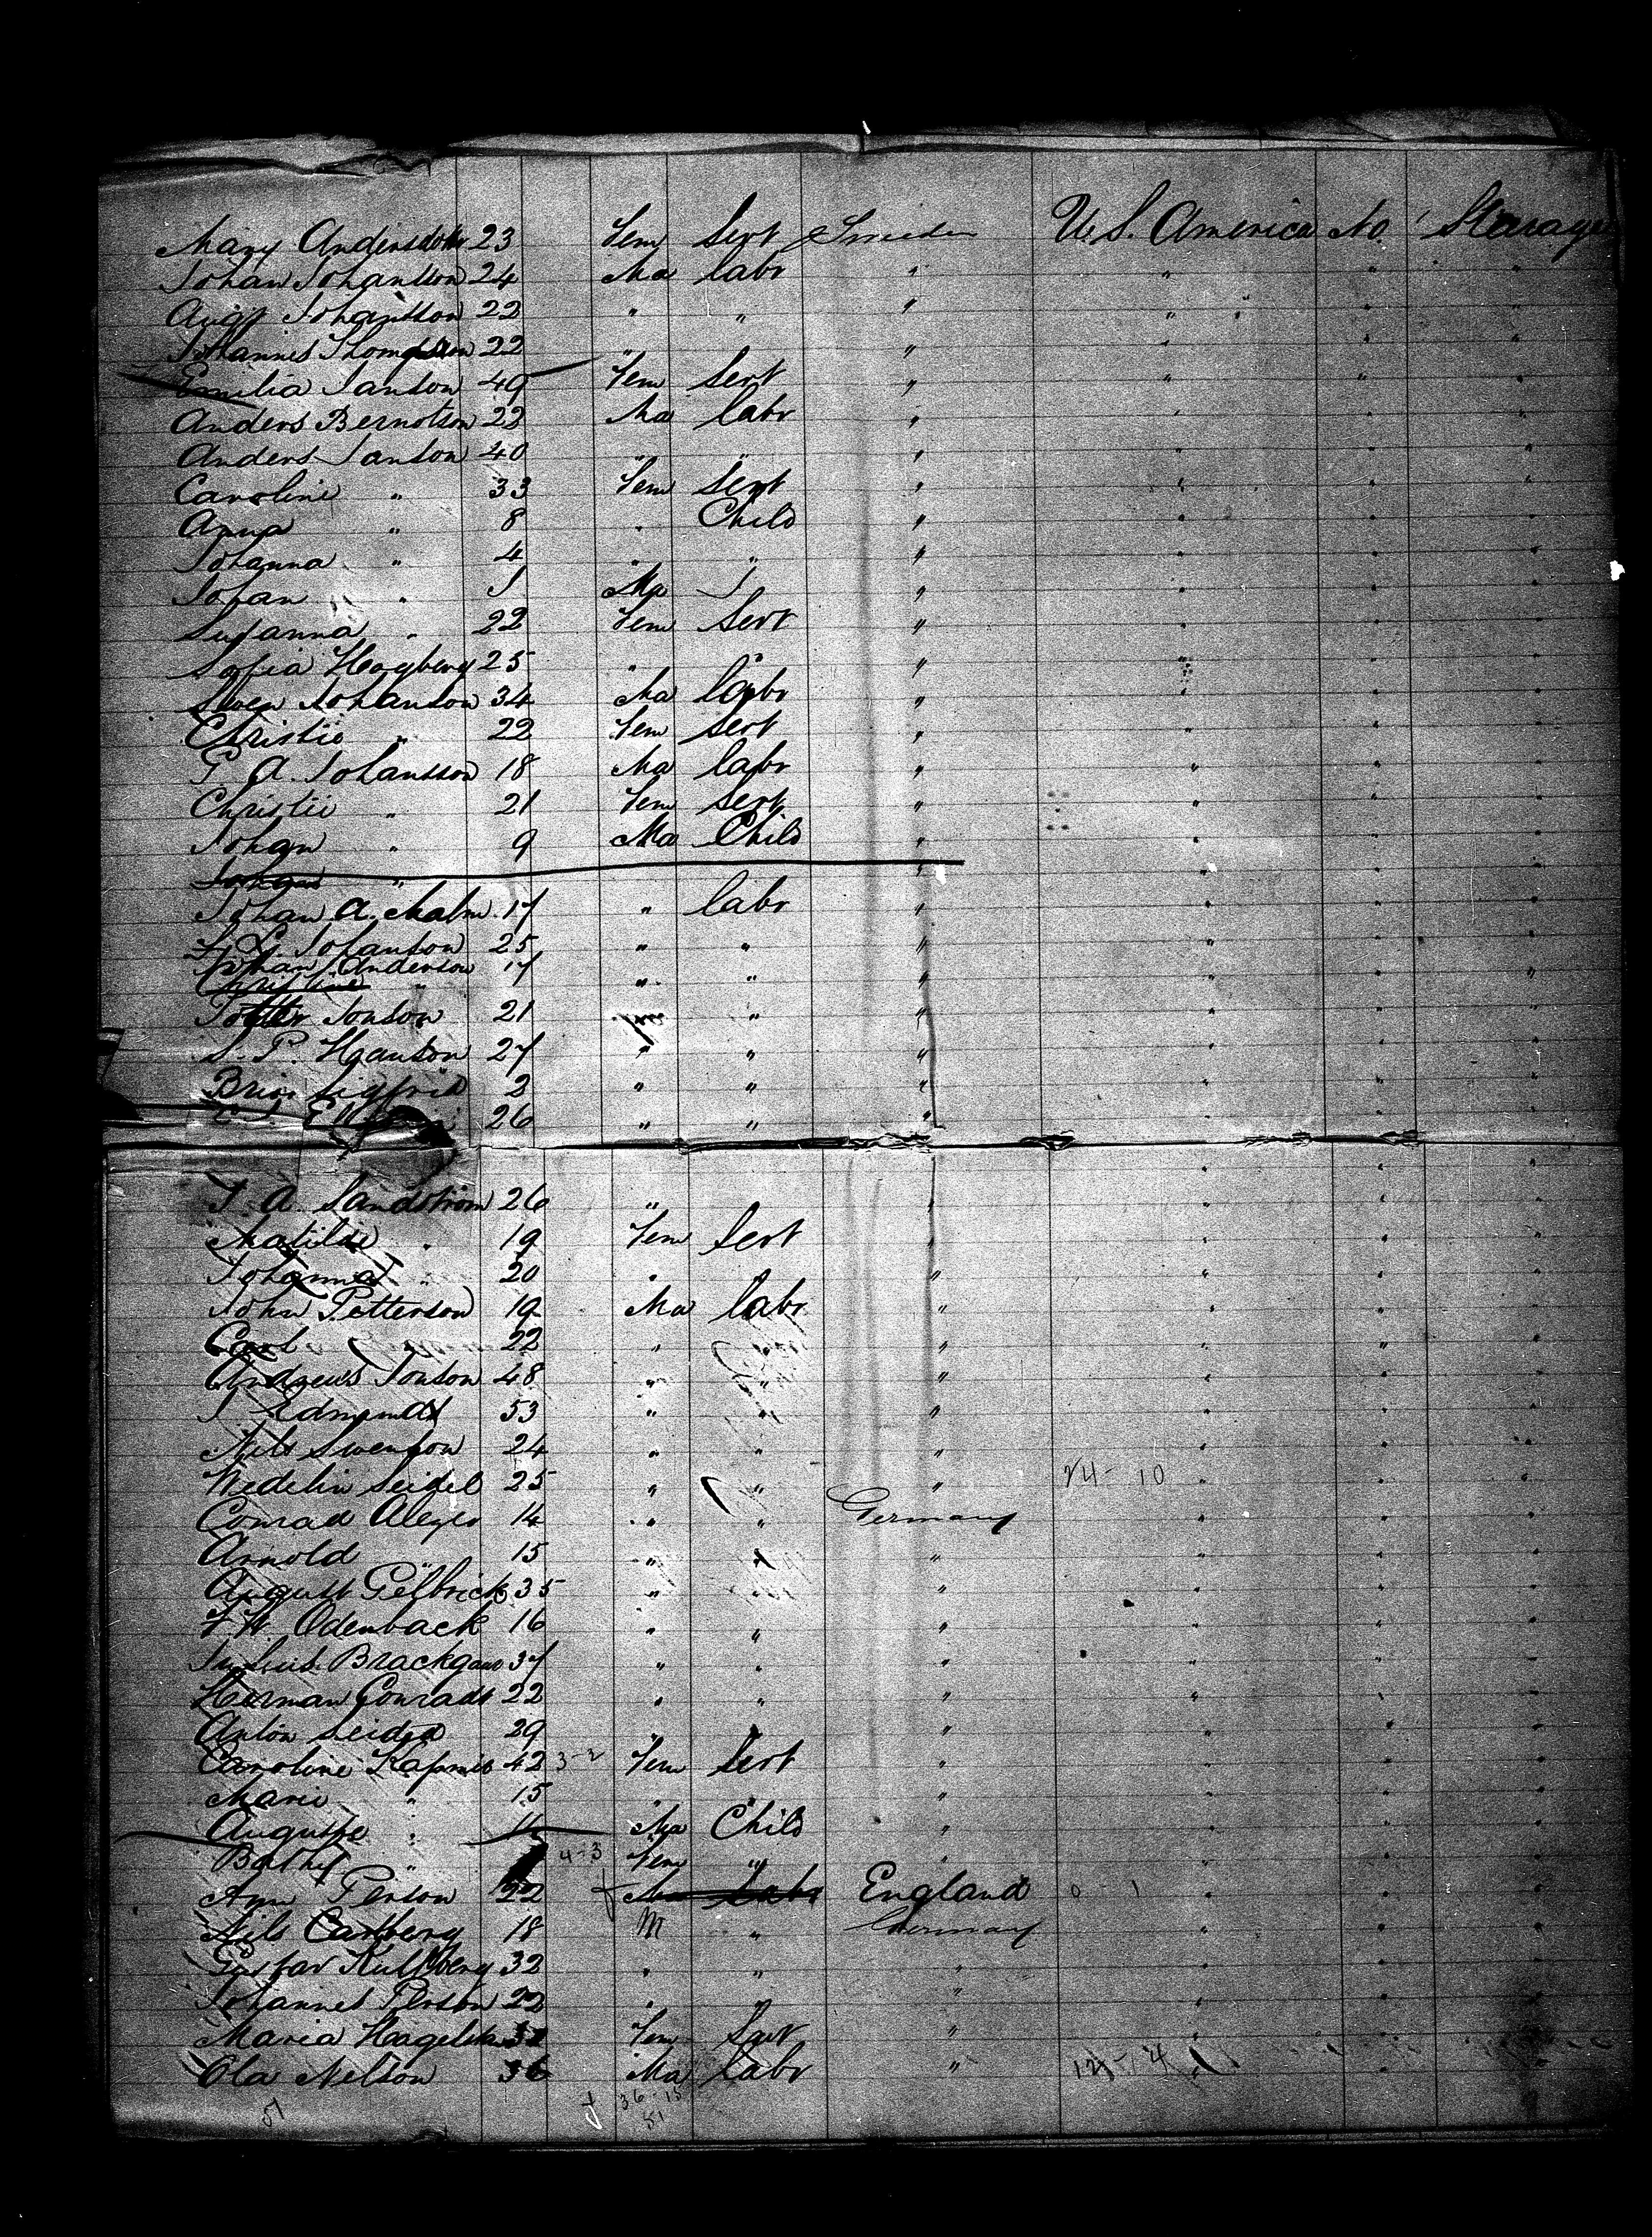 Mary Andersdotr 23 Fem Servt Sweden U.S. America No Stearage
Johan Johansson 24 Ma labr " " " "
Augt Johansson 22 " " " " " "
Johannes 22 " " " " "
Emilia Janson 49 Fem Servt " " " "
Anders Berntson 22 Ma labr " " "
Anders Janson 40 " " " " " "
Caroline " 33 Fem Servt " " " "
Anna " 8 " Child " " " "
Johanna " 4 " " " " " "
Johan " 1 Ma " " " " "
Susanna " 22 Fem Servt " " " "
Sofia Hogberg 25 " " " " " "
Swen Johanson 34 Ma labr " " " "
Christie " 22 Fem Servt " " " "
P. A. Johansson 18 Ma labr " " " "
Christie " 21 Fem Servt " " " "
Johan " 9 Ma Child " " " "
Johan " " " " "
Johan A. Malm 17 " labr " " " "
Johanson 25 " " " " " "
Johan Anderson 17
Christine " " " " " " "
Jonson 21 " " " " "
S. P. Hanson 27 " " " " " "
Sigfrid 2 " " " " " "
26 " " " " " "
" " "
J. A. Sandström 26 " " " " "
Matilda " 19 Fem Servt " " "
Johanna " 20 " " " " "
John Petterson 19 Ma labr " " " "
Carl 22 " " " " "
Andreus Jonson 48 " " " " " "
J Edmund 53 " " " " " "
Nils Swenson 24 " " " " " "
Wedelin Seidel 25 " " " 24-10 " " "
Conrad 14 " " Germany " " "
Arnold " 15 " " " " " "
August Gelbrick 35 " " " " " "
F. W. Odenback 16 " " " " " "
37 " " " " " "
Herman Conradt 22 " " " " " "
Anton Seidel 29 " " " " "
Caroline 42 3-2 Fem Servt " " " "
Marie " 15 " " " " " "
Auguste " 11 Ma Child " " " "
" 4-3 Fem " " " " "
Ann Person 22 Ma labr England 0-1 " " "
Nils Carlberg 18 M " Germany " " "
Gustav Kullberg 32 " " " " " "
Johannes Person 22 " " " " " "
Maria Fem Servt " " " "
Ola Nelson 36 Ma labr " 12-14 " " "
51 36-15
51